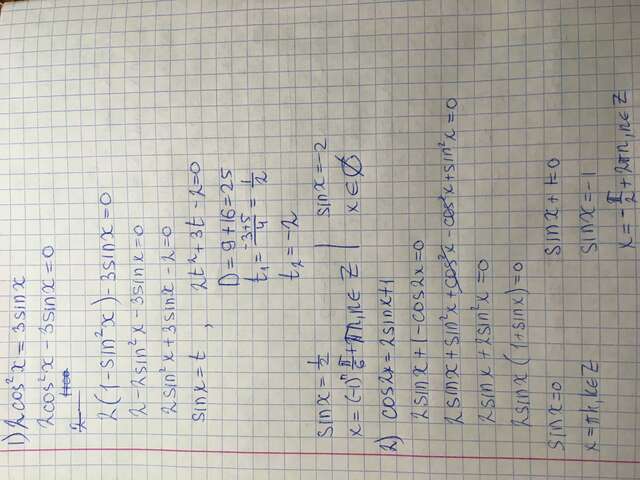 1) 2cos²x = 3sinx
2cos²x - 3sinx = 0
2(1 - sin²x) - 3sinx = 0
2 - 2sin²x - 3sinx = 0
2sin²x + 3sinx - 2 = 0
sinx = t , 2t² + 3t - 2 = 0
D = 9 + 16 = 25
t₁ = (-3+5)/4 = 1/2
t₂ = -2
sinx = 1/2 | sinx = -2
x = (-1)ⁿ π/6 + πn, n ∈ Z | x ∈ ∅
2) cos2x = 2sinx + 1
2sinx + 1 - cos2x = 0
2sinx + sin²x + cos²x - cos²x + sin²x = 0
2sinx + 2sin²x = 0
2sinx (1 + sinx) = 0
sinx = 0 sinx + 1 = 0
x = πk, k ∈ Z sinx = -1
x = -π/2 + 2πn, n ∈ Z